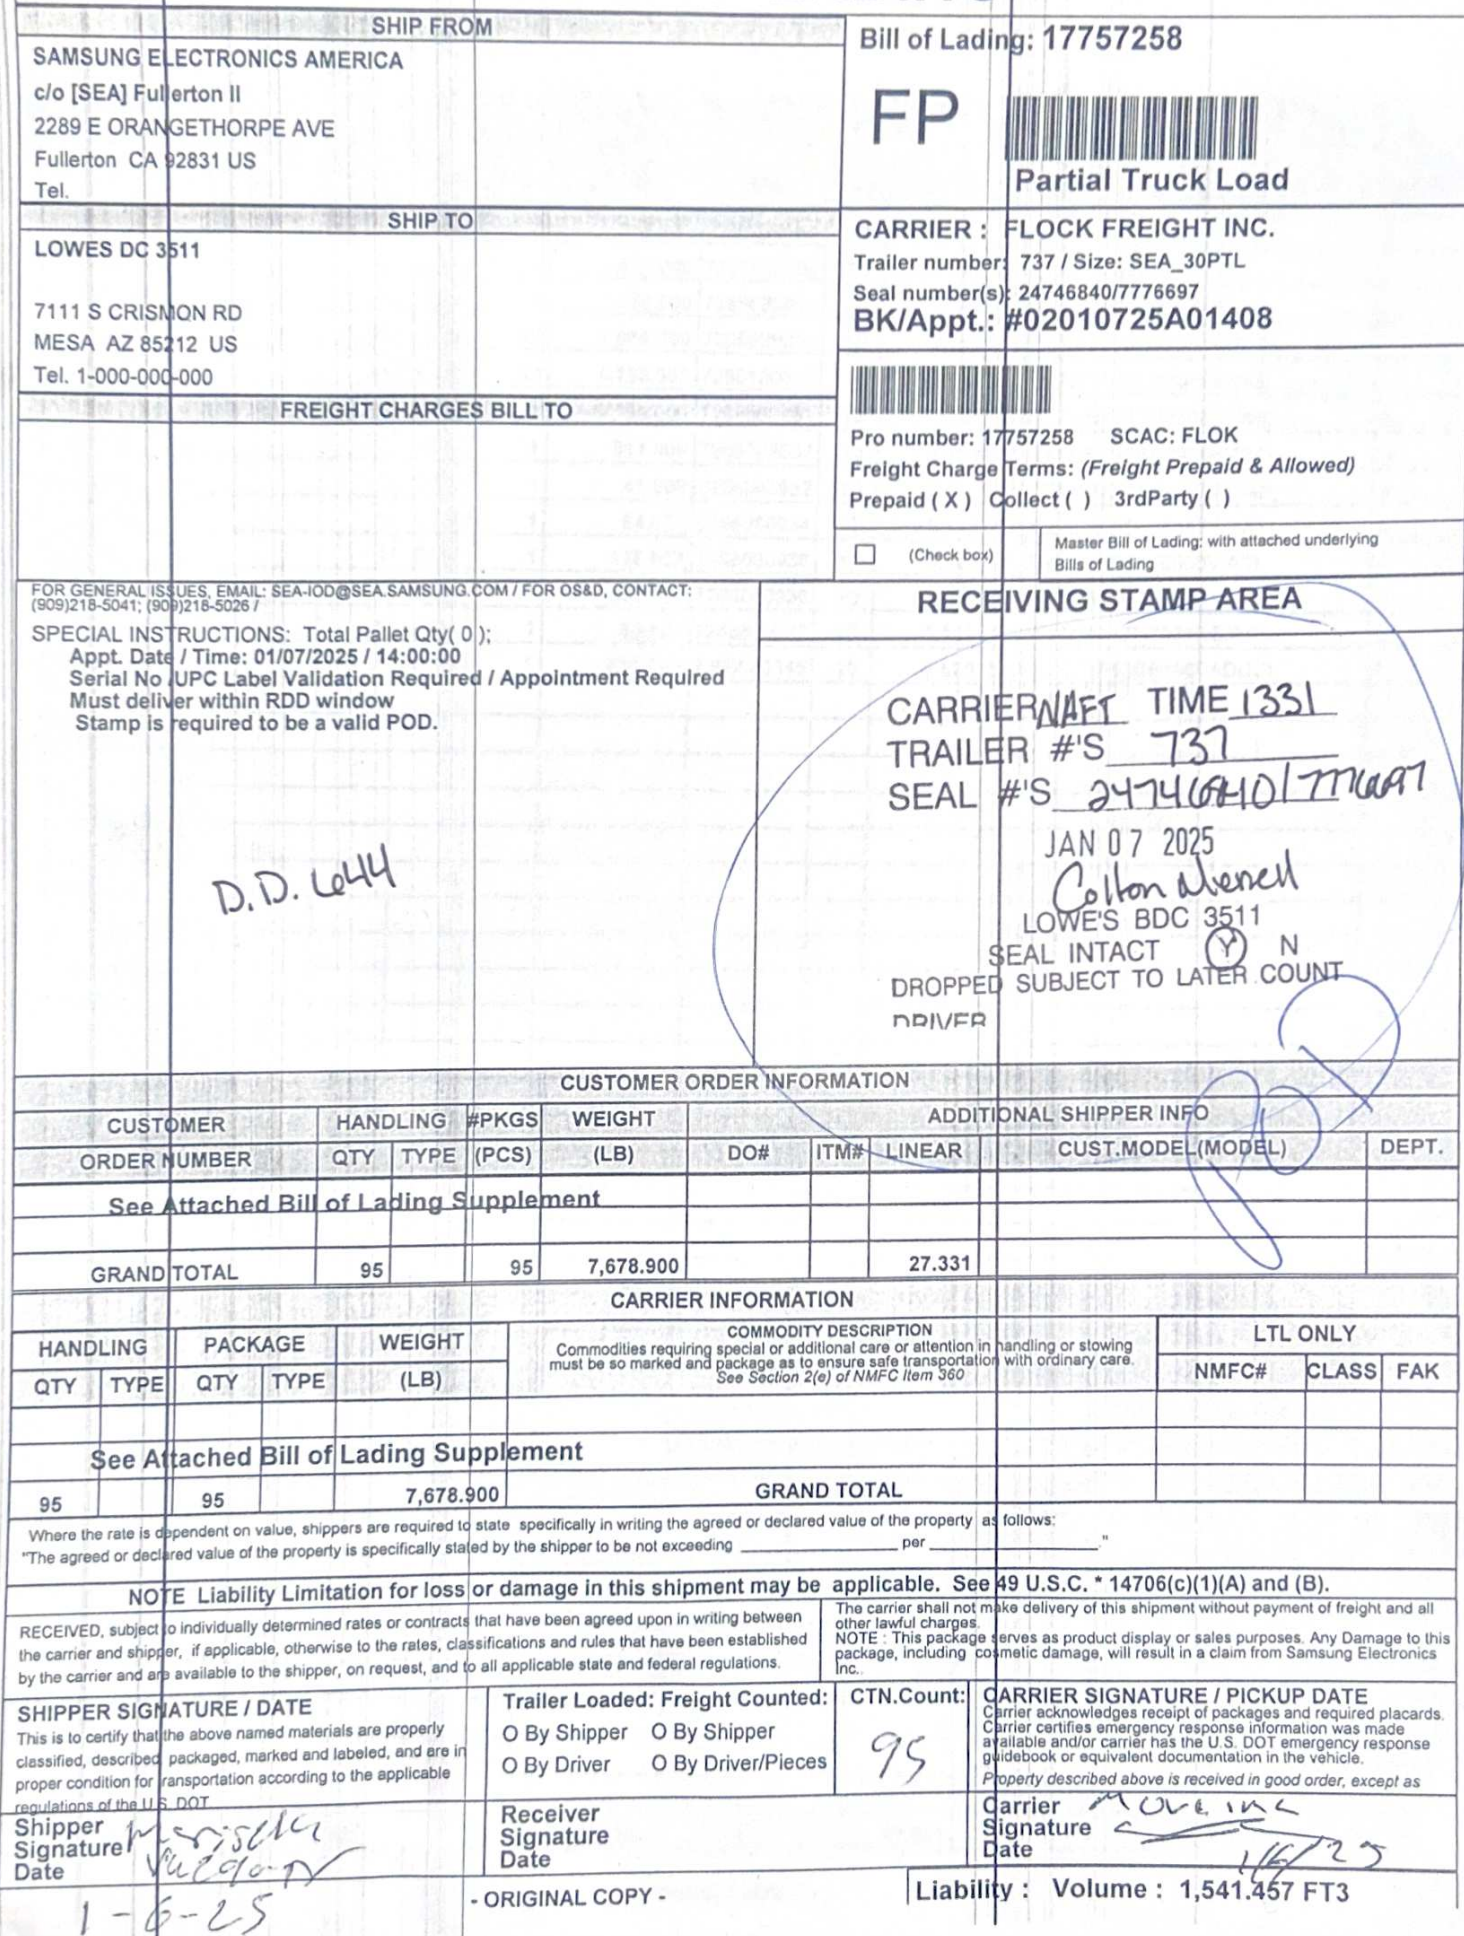 SHIP FROM
SAMSUNG ELECTRONICS AMERICA
c/o [SEA] Fullerton II
2289 E ORANGETHORPE AVE
Fullerton CA 92831 US
Tel.
Bill of Lading: 17757258
FP
Partial Truck Load
SHIP TO
LOWES DC 3511
7111 S CRISMON RD
MESA AZ 85212 US
Tel. 1-000-000-000
CARRIER : FLOCK FREIGHT INC.
Trailer number: 737 / Size: SEA_30PTL
Seal number(s): 24746840/7776697
BK/Appt.: #02010725A01408
FREIGHT CHARGES BILL TO
Pro number: 17757258 SCAC: FLOK
Freight Charge Terms: (Freight Prepaid & Allowed)
Prepaid ( X ) Collect ( ) 3rdParty ( )
(Check box)
Master Bill of Lading: with attached underlying
Bills of Lading
FOR GENERAL ISSUES, EMAIL: SEA-IOD@SEA.SAMSUNG.COM / FOR OS&D, CONTACT:
(909)218-5041; (909)218-5026 /
SPECIAL INSTRUCTIONS: Total Pallet Qty( 0 );
Appt. Date / Time: 01/07/2025 / 14:00:00
Serial No /UPC Label Validation Required / Appointment Required
Must deliver within RDD window
Stamp is required to be a valid POD.
D.D. 644
RECEIVING STAMP AREA
CARRIER NAFT TIME 1331
TRAILER #'S 737
SEAL #'S 24746840/7776697
JAN 07 2025
Colton
LOWE'S BDC 3511
SEAL INTACT Y N
DROPPED SUBJECT TO LATER COUNT
DRIVER
CUSTOMER ORDER INFORMATION
CUSTOMER HANDLING #PKGS WEIGHT ADDITIONAL SHIPPER INFO
ORDER NUMBER QTY TYPE (PCS) (LB) DO# ITM# LINEAR CUST.MODEL(MODEL) DEPT.
See Attached Bill of Lading Supplement
GRAND TOTAL 95 95 7,678.900 27.331
CARRIER INFORMATION
HANDLING PACKAGE WEIGHT COMMODITY DESCRIPTION LTL ONLY
Commodities requiring special or additional care or attention in handling or stowing
must be so marked and package as to ensure safe transportation with ordinary care.
See Section 2(e) of NMFC Item 360
QTY TYPE QTY TYPE (LB) NMFC# CLASS FAK
See Attached Bill of Lading Supplement
95 95 7,678.900 GRAND TOTAL
Where the rate is dependent on value, shippers are required to state specifically in writing the agreed or declared value of the property as follows:
"The agreed or declared value of the property is specifically stated by the shipper to be not exceeding ____________ per ____________."
NOTE Liability Limitation for loss or damage in this shipment may be applicable. See 49 U.S.C. * 14706(c)(1)(A) and (B).
RECEIVED, subject to individually determined rates or contracts that have been agreed upon in writing between
the carrier and shipper, if applicable, otherwise to the rates, classifications and rules that have been established
by the carrier and are available to the shipper, on request, and to all applicable state and federal regulations.
The carrier shall not make delivery of this shipment without payment of freight and all
other lawful charges.
NOTE : This package serves as product display or sales purposes. Any Damage to this
package, including cosmetic damage, will result in a claim from Samsung Electronics
Inc..
SHIPPER SIGNATURE / DATE
This is to certify that the above named materials are properly
classified, described, packaged, marked and labeled, and are in
proper condition for ransportation according to the applicable
regulations of the U.S. DOT
Trailer Loaded: Freight Counted:
O By Shipper O By Shipper
O By Driver O By Driver/Pieces
CTN.Count:
95
CARRIER SIGNATURE / PICKUP DATE
Carrier acknowledges receipt of packages and required placards.
Carrier certifies emergency response information was made
available and/or carrier has the U.S. DOT emergency response
guidebook or equivalent documentation in the vehicle.
Property described above is received in good order, except as
Shipper
Signature
Date
1-6-25
Receiver
Signature
Date
Carrier
Signature
Date 1/6/25
- ORIGINAL COPY -
Liability : Volume : 1,541.457 FT3